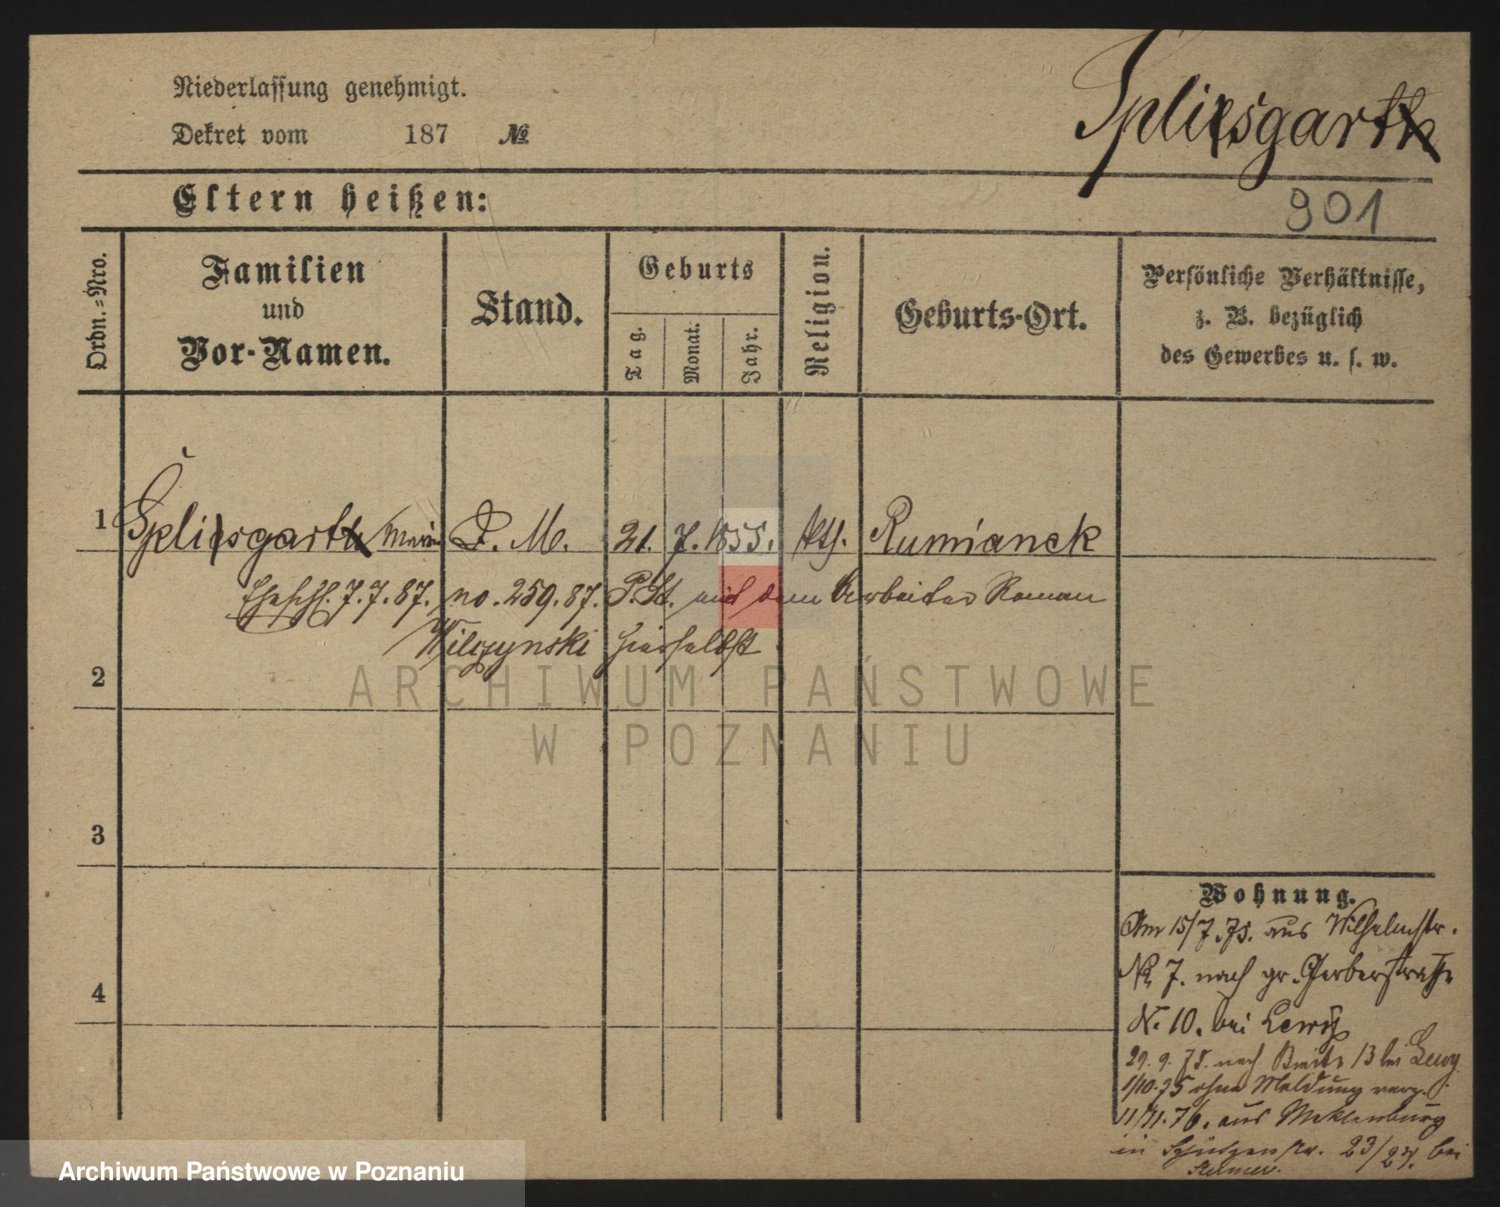 Niederlassung genehmigt.
Dekret vom 187 №
Spliesgarth
901
Eltern heißen:
Ordn.-Nro.
Familien
und
Vor-Namen.
Stand.
Geburts
Tag.
Monat.
Jahr.
Religion.
Geburts-Ort.
Persönliche Verhältnisse,
z. B. bezüglich
des Gewerbes u. s. w.
1 Spliesgarth Marie D. M. 21. 7. 1855. kth. Rumianek
Eheschl. 7.7.87. no. 259.87. P. St. mit dem Arbeiter Roman
Wilczynski hierselbst.
2
3
4
ARCHIWUM PAŃSTWOWE
W POZNANIU
Wohnung.
Am 15/7.75. aus Wilhelmstr.
No 7. nach gr. Gerberstraße
N. 10. bei Lewy
29. 9. 75. nach Breite 13 bei Lewy
1/10.75 ohne Meldung verz.
11/11.76. aus Meklenburg
in Schützenstr. 23/24. bei
Archiwum Państwowe w Poznaniu